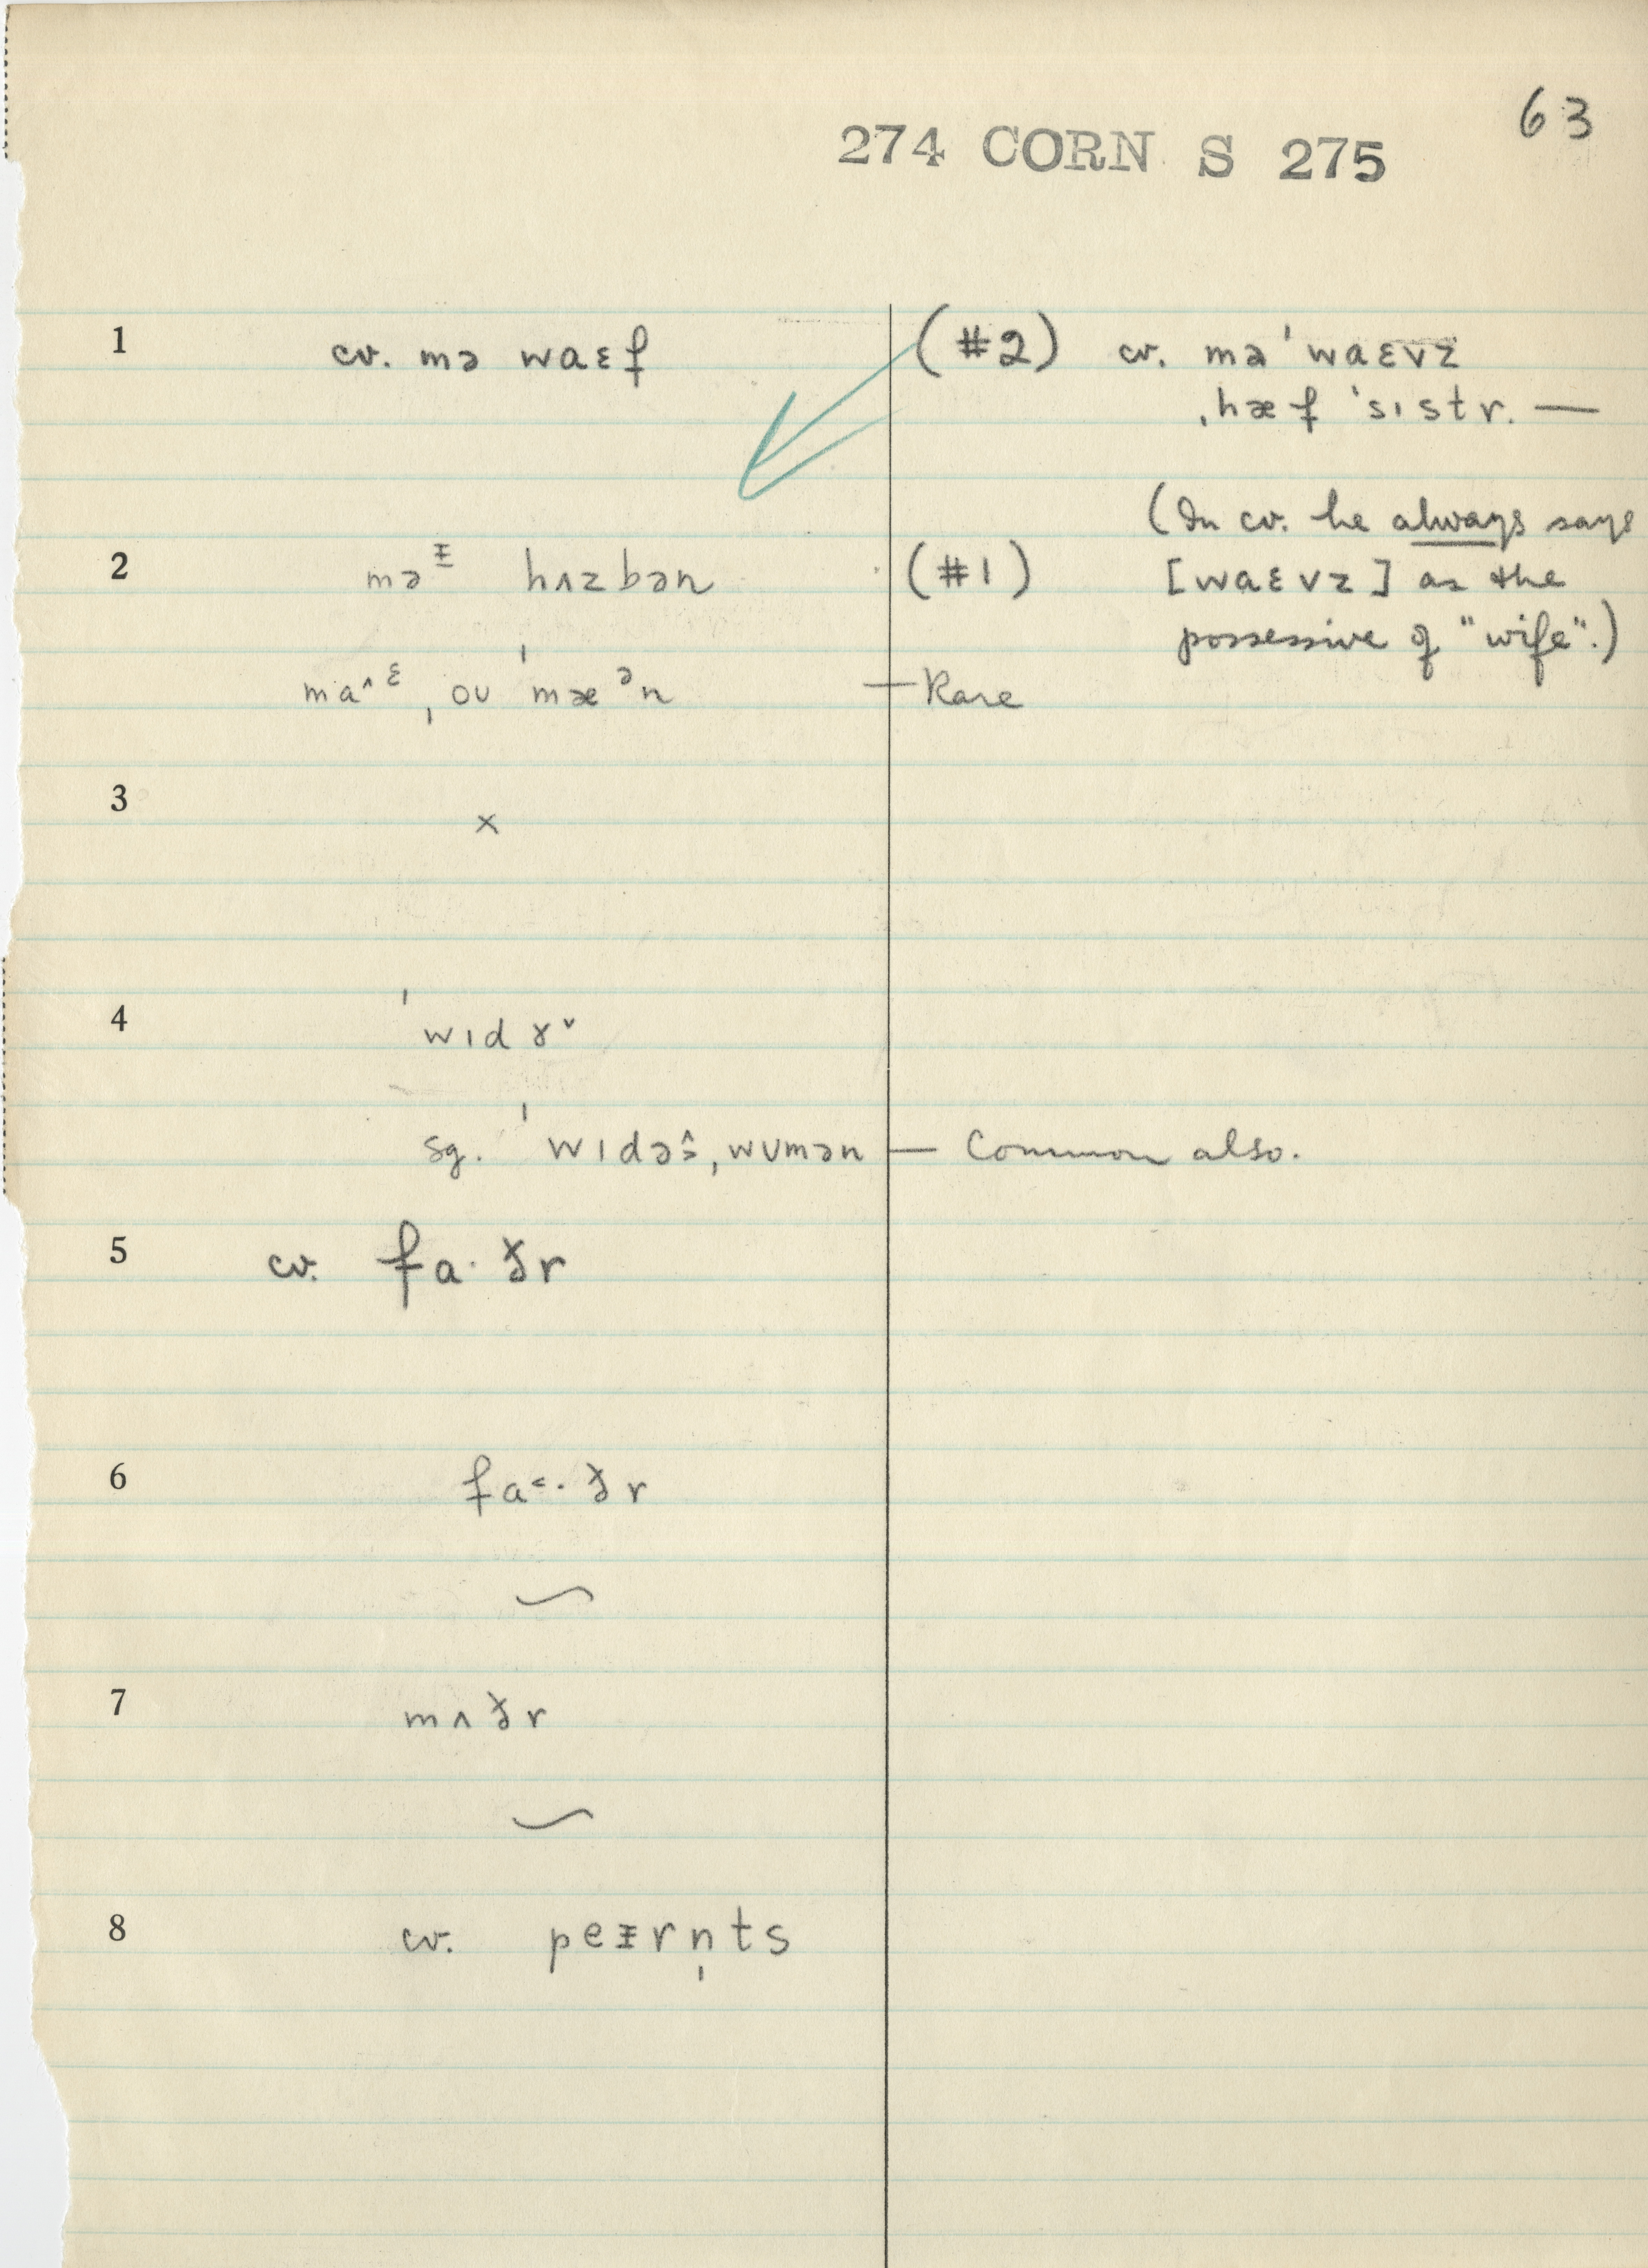 63
274 CORN S 275
1 cv. mə waɛf (#2) cv. mə ˈwaɛvz
ˌhæf ˈsɪstr. —
(In cv. he always says
2 məᵻ hʌzbən (#1) [waɛvz] as the
possessive of "wife".)
ma^ᵋ ˌoʊ ˈmæᵊn — Rare
3 ×
4 ˈwɪdɤ˅
sg. ˈwɪdə˄˃ ˌwʊmən — Common also.
5 cv. fa·ðr
6 fa˂·ðr
⁓
7 mʌðr
⁓
8 cv. peᵻrn̩ts